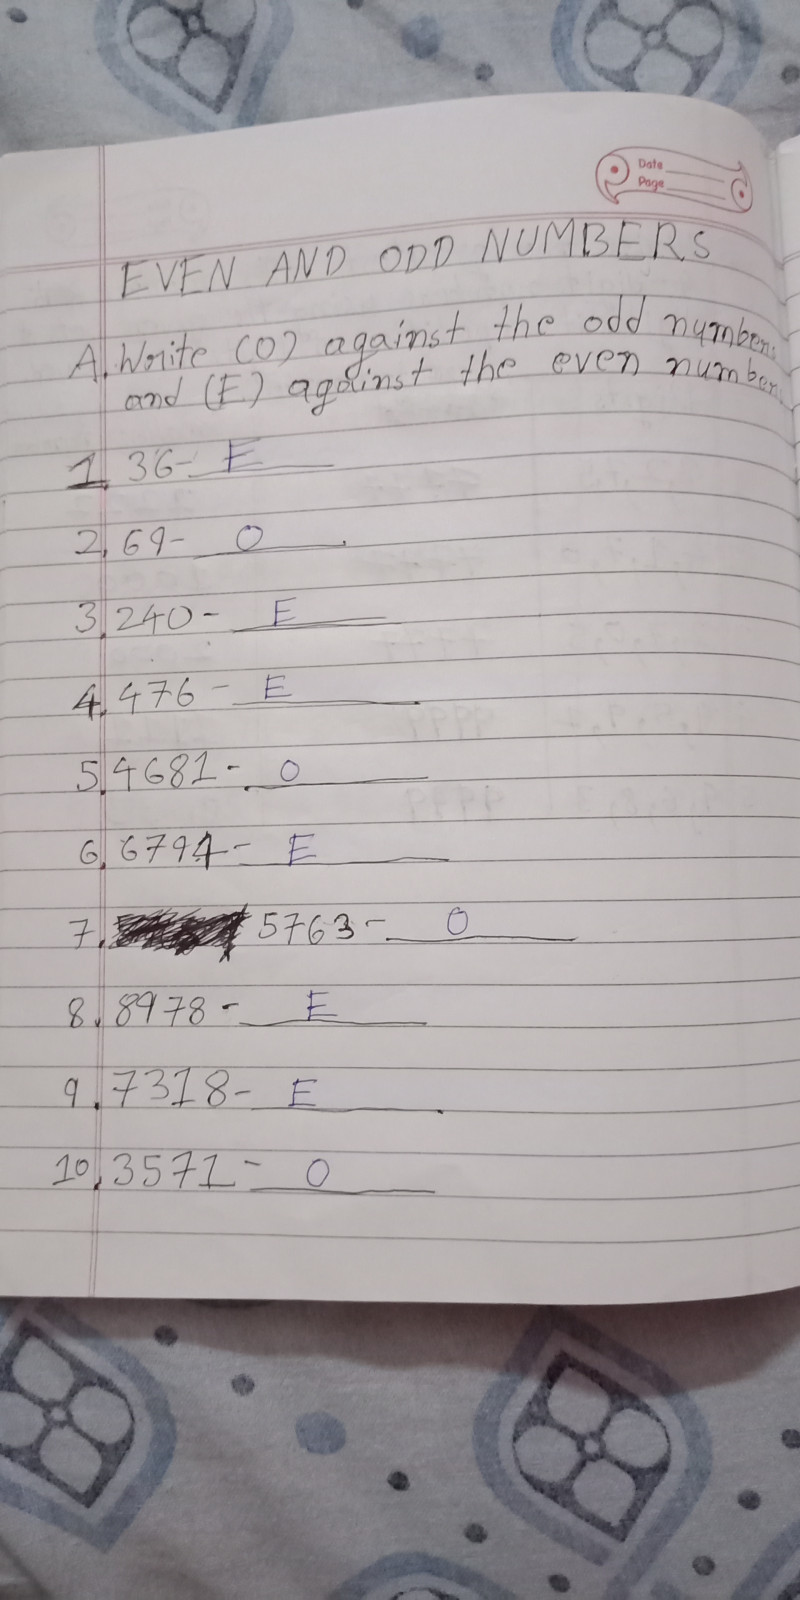 Date
Page
EVEN AND ODD NUMBERS
A. Write (O) against the odd numbers
and (E) against the even number
1. 36- E
2. 69- O
3. 240- E
4. 476- E
5. 4681- O
6. 6794- E
7. 5763- O
8. 8978- E
9. 7318- E
10. 3571- O